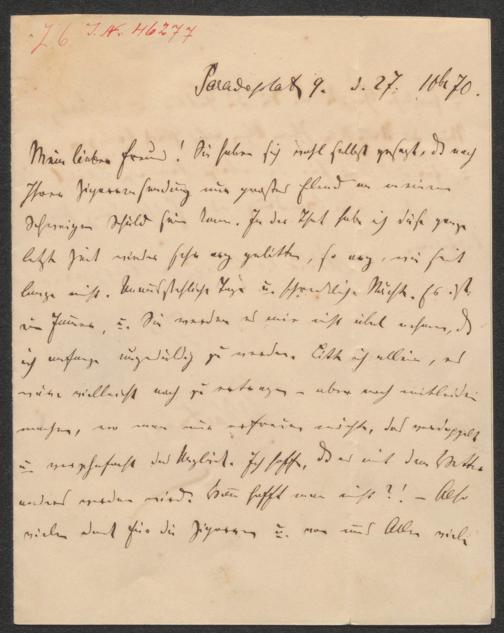 I. N. 46277
Paradeplatz 9. d. 27. 10br 70.
Mein lieber Freund! Sie haben sich wohl selbst gesagt, daß nach
Ihrer Zigarrensendung nur großes Elend an meinem
Schweigen Schuld sein kann. In der That habe ich diese ganze
letzte Zeit wieder sehr arg gelitten, so arg, wie seit
lange nicht. Unausstehliche Tage u. schreckliche Nächte. Es ist
ein Jammer, u. Sie werden es mir nicht übel nehmen, daß
ich anfange ungeduldig zu werden. Litte ich allein, es
wäre vielleicht noch zu ertragen – aber noch mitleiden
machen, wo man nur erfreuen möchte, das verdoppelt
u. verzehnfacht das Unglück. Ich hoffe, daß es mit dem Wetter
anders werden wird. Wann hofft man nicht?! – Also
vielen Dank für die Zigarren u. von uns Allen viele